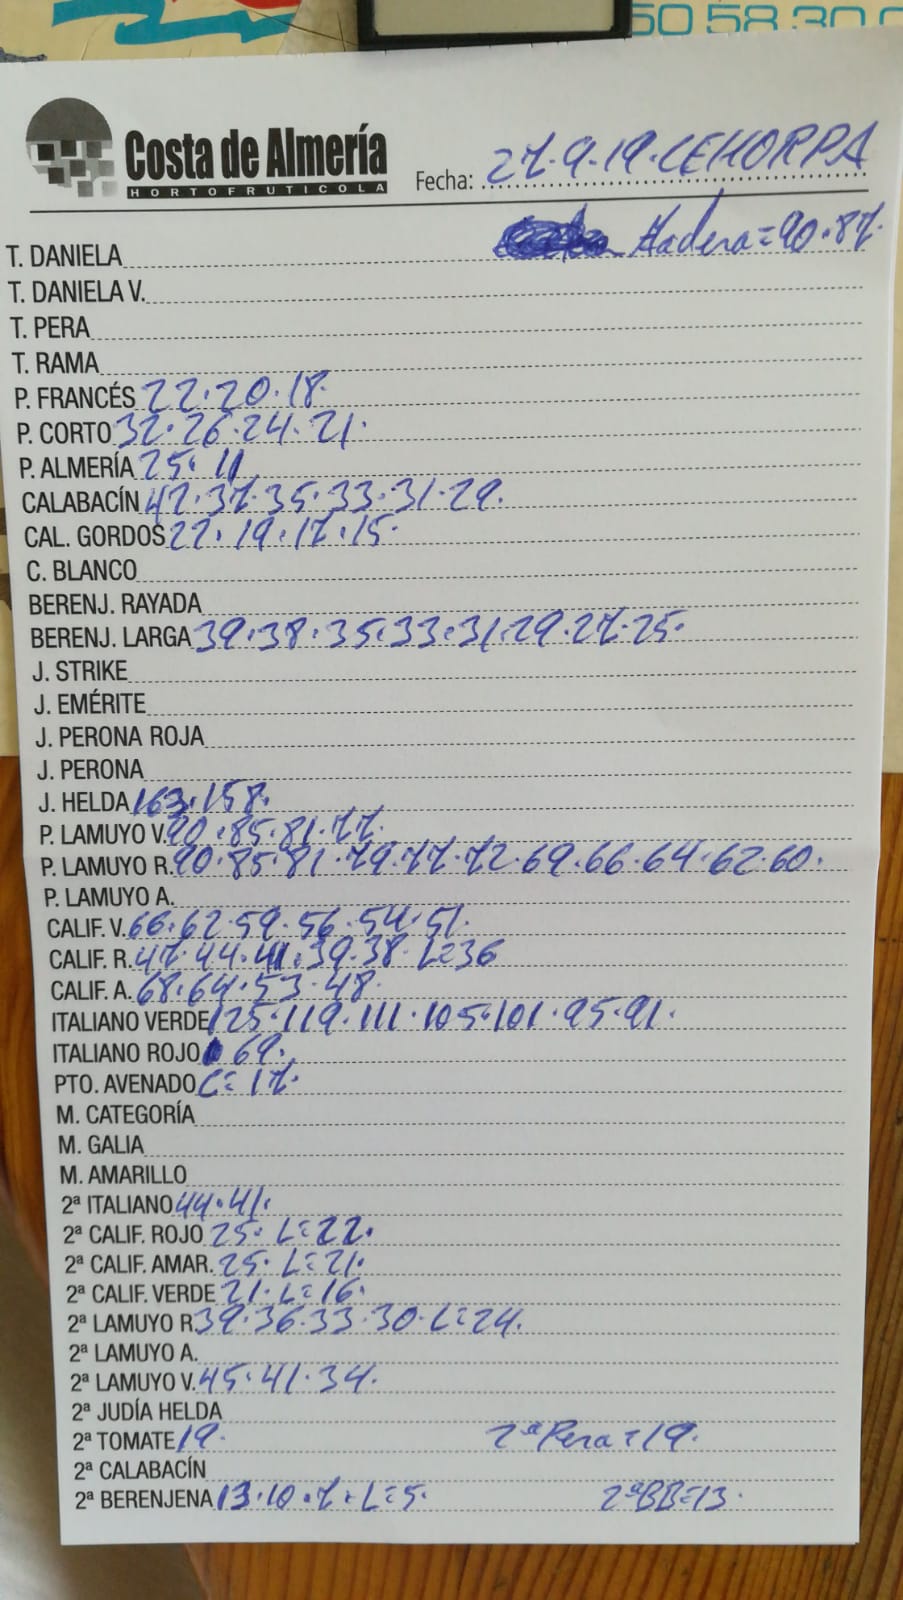 50 58 30 0
Costa de Almería
HORTOFRUTICOLA
Fecha: 27.9.19.CEHORPA
Madera=90.87.
T. DANIELA
T. DANIELA V.
T. PERA
T. RAMA
P. FRANCÉS 22.20.18.
P. CORTO 32.26.24.21.
P. ALMERÍA 25.11
CALABACÍN 42.37.35.33.31.29.
CAL. GORDOS 22.19.17.15.
C. BLANCO
BERENJ. RAYADA
BERENJ. LARGA 39.38.35.33.31.29.27.25.
J. STRIKE
J. EMÉRITE
J. PERONA ROJA
J. PERONA
J. HELDA 163.158.
P. LAMUYO V. 90.85.81.77.
P. LAMUYO R. 90.85.81.79.77.72.69.66.64.62.60.
P. LAMUYO A.
CALIF. V. 66.62.59.56.54.51.
CALIF. R. 47.44.41.39.38. L=36
CALIF. A. 68.64.53.48.
ITALIANO VERDE 125.119.111.105.101.95.91.
ITALIANO ROJO 69.
PTO. AVENADO C=17.
M. CATEGORÍA
M. GALIA
M. AMARILLO
2ª ITALIANO 44.41.
2ª CALIF. ROJO 25. L=22.
2ª CALIF. AMAR. 25. L=21.
2ª CALIF. VERDE 21. L=16.
2ª LAMUYO R. 39.36.33.30. L=24.
2ª LAMUYO A.
2ª LAMUYO V. 45.41.34.
2ª JUDÍA HELDA
2ª TOMATE 19. 2ªPera=19.
2ª CALABACÍN
2ª BERENJENA 13.10.7. L=5. 2ªBB=13.